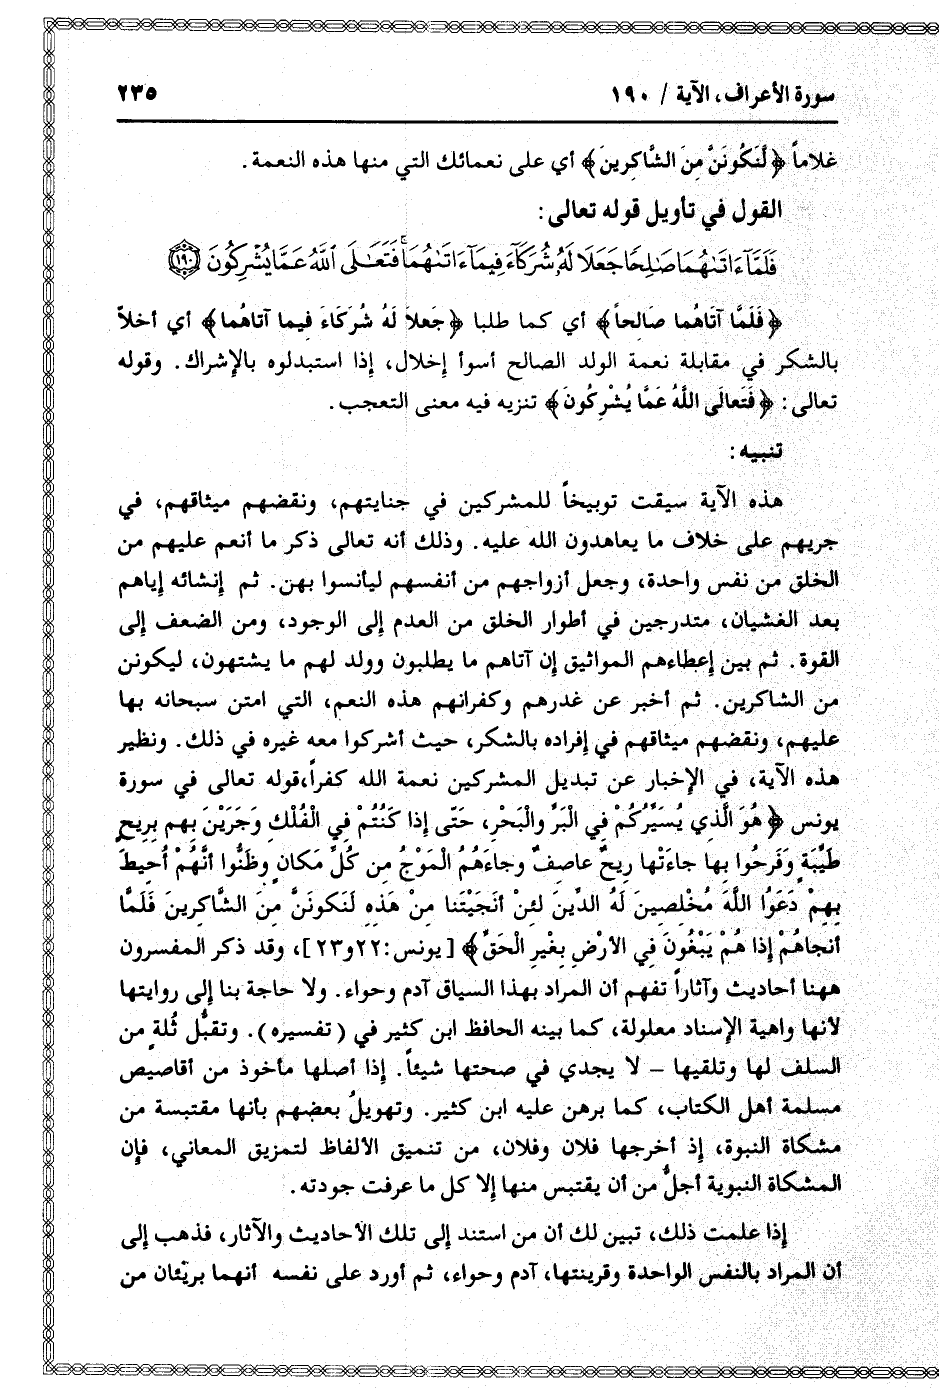 سورة الأعراف، الآية / ١٩٠
٢٣٥
غلاماً ﴿لَنَكُونَنَّ مِنَ الشَّاكِرِينَ﴾ أي على نعمائك التي منها هذه النعمة.
القول في تأويل قوله تعالى:
فَلَمَّآ ءَاتَىٰهُمَا صَٰلِحًا جَعَلَا لَهُۥ شُرَكَآءَ فِيمَآ ءَاتَىٰهُمَاۚ فَتَعَٰلَى ٱللَّهُ عَمَّا يُشْرِكُونَ ١٩٠
﴿فَلَمَّا آتَاهُما صَالِحاً﴾ أي كما طلبا ﴿جَعَلاَ لَهُ شُرَكَاءَ فِيما آتاهُما﴾ أي أخلاّ
بالشكر في مقابلة نعمة الولد الصالح أسوأ إخلال، إذا استبدلوه بالإشراك. وقوله
تعالى: ﴿فَتَعالَى اللَّهُ عَمَّا يُشْرِكُونَ﴾ تنزيه فيه معنى التعجب.
تنبيه:
هذه الآية سيقت توبيخاً للمشركين في جنايتهم، ونقضهم ميثاقهم، في
جريهم على خلاف ما يعاهدون الله عليه. وذلك أنه تعالى ذكر ما أنعم عليهم من
الخلق من نفس واحدة، وجعل أزواجهم من أنفسهم ليأنسوا بهن. ثم إنشائه إياهم
بعد الغشيان، متدرجين في أطوار الخلق من العدم إلى الوجود، ومن الضعف إلى
القوة. ثم بين إعطاءهم المواثيق إن آتاهم ما يطلبون وولد لهم ما يشتهون، ليكونن
من الشاكرين. ثم أخبر عن غدرهم وكفرانهم هذه النعم، التي امتن سبحانه بها
عليهم، ونقضهم ميثاقهم في إفراده بالشكر، حيث أشركوا معه غيره في ذلك. ونظير
هذه الآية، في الإخبار عن تبديل المشركين نعمة الله كفراً،قوله تعالى في سورة
يونس ﴿هُوَ الَّذِي يُسَيِّرُكُمْ فِي الْبَرِّ والْبَحْرِ، حَتّى إذا كُنْتُمْ فِي الْفُلْكِ وَجَرَيْنَ بِهِم بِرِيحٍ
طَيِّبَةٍ وَفَرِحُوا بِها جاءَتْها رِيحٌ عاصفٌ وجاءَهُمُ الْمَوْجُ مِن كُلِّ مَكان وظَنُّوا أنَّهُمْ أُحِيطَ
بِهِمْ دَعَوُا اللَّهَ مُخْلِصِينَ لَهُ الدِّينَ لَئِنْ أنْجَيْتَنا مِنْ هَذِهِ لَنَكونَنَّ مِنَ الشَّاكِرِينَ فَلَمَّا
أنجاهُمْ إذا هُمْ يَبْغُونَ فِي الأرْضِ بِغَيْرِ الْحَقِّ﴾ [يونس:٢٢و٢٣]، وقد ذكر المفسرون
ههنا أحاديث وآثاراً تفهم أن المراد بهذا السياق آدم وحواء. ولا حاجة بنا إلى روايتها
لأنها واهية الإسناد معلولة، كما بينه الحافظ ابن كثير في (تفسيره). وتقبُّل ثُلة من
السلف لها وتلقيها – لا يجدي في صحتها شيئاً. إذا أصلها مأخوذ من أقاصيص
مسلمة أهل الكتاب، كما برهن عليه ابن كثير. وتهويلُ بعضهم بأنها مقتبسة من
مشكاة النبوة، إذ أخرجها فلان وفلان، من تنميق الألفاظ لتمزيق المعاني، فإن
المشكاة النبوية أجلُّ من أن يقتبس منها إلا كل ما عرفت جودته.
إذا علمت ذلك، تبين لك أن من استند إلى تلك الأحاديث والآثار، فذهب إلى
أن المراد بالنفس الواحدة وقرينتها، آدم وحواء، ثم أورد على نفسه أنهما بريئان من